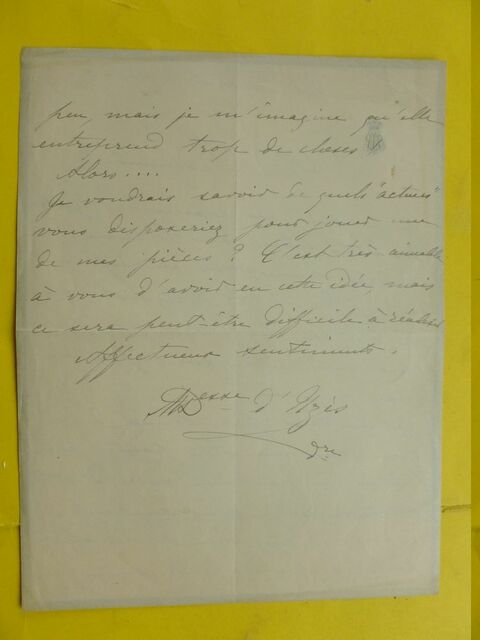 peu, mais je m'imagine qu'elle
entreprend trop de choses
Alors....
Je voudrais savoir de quels "acteurs"
vous disposeriez pour jouer une
de mes pièces ? C'est très-aimable
à vous d'avoir eu cette idée, mais
ce sera peut-être difficile à réaliser
Affectueux sentiments.
Desse d'Uzès
dre